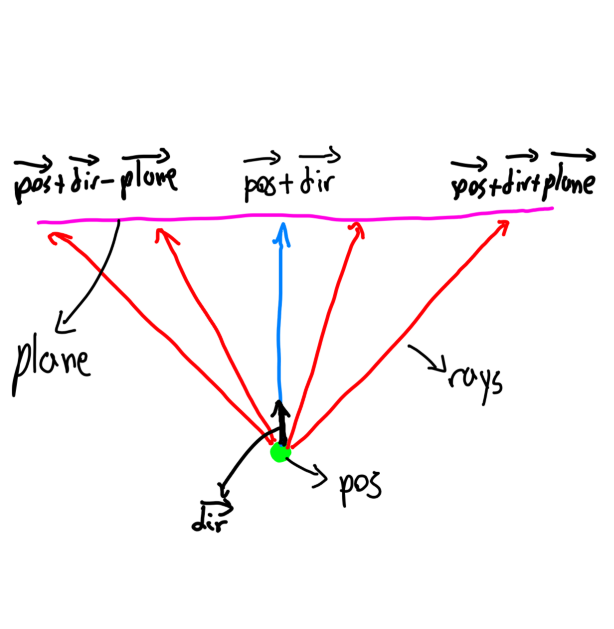 pos+dir-plane
pos+dir
pos+dir+plane
plane
rays
pos
dir